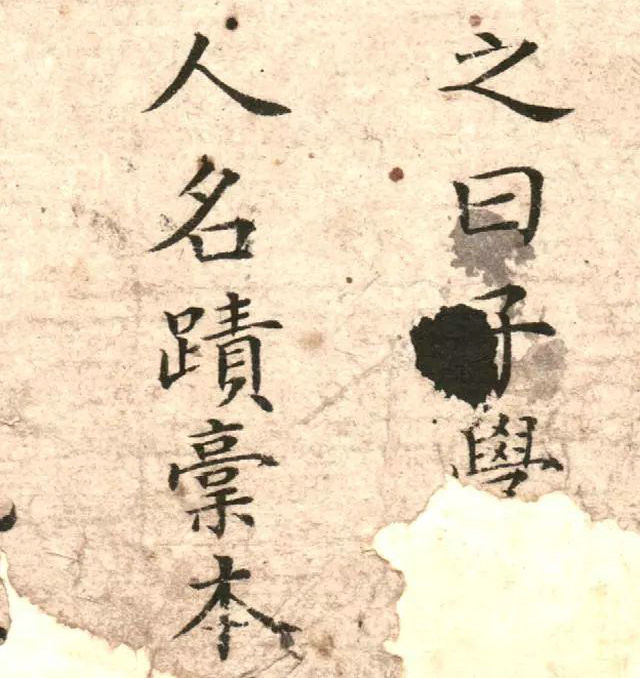 之曰子學
人名蹟稾本